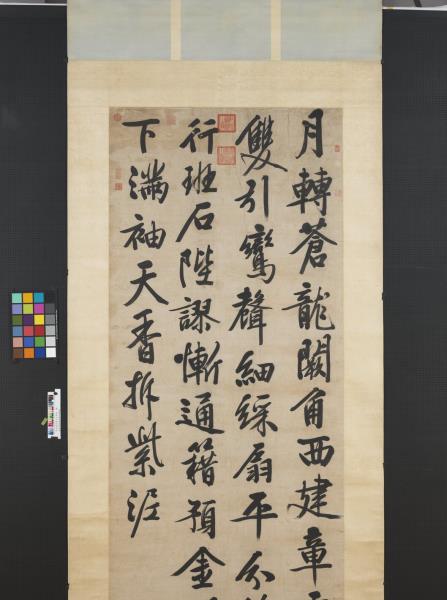 月轉蒼龍闕角西建章
雙引鸞聲細綵扇平分
行班石陛謬慚通籍預金
下滿袖天香拆紫泥